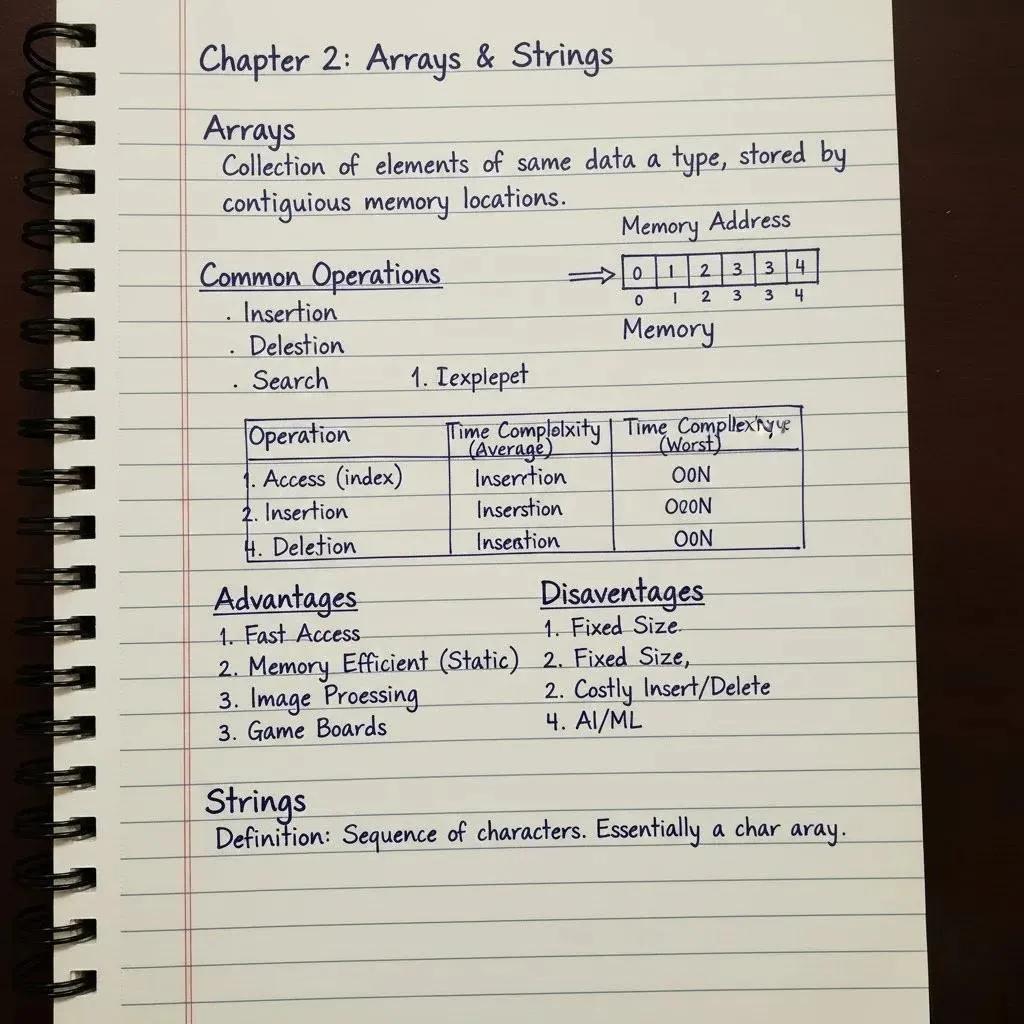 Chapter 2: Arrays & Strings
Arrays
Collection of elements of same data a type, stored by
contiguious memory locations.
Memory Address
0 1 2 3 3 4
0 1 2 3 3 4
Memory
Common Operations
· Insertion
· Delestion
· Search 1. Iexplepet
Operation Time Complolxity (Average) Time (Worst)
1. Access (index) Inserrtion OON
2. Insertion Inserstion OOON
4. Deletion Insestion OON
Advantages
1. Fast Access
2. Memory Efficient (Static)
3. Image Proessing
3. Game Boards
Disaventages
1. Fixed Size.
2. Fixed Size,
2. Costly Insert/Delete
4. AI/ML
Strings
Definition: Sequence of characters. Essentially a char aray.